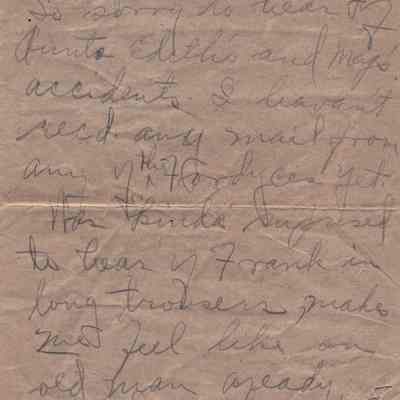 So sorry to hear of
Aunts Edith's and Mags'
accidents. I havant
recd. any mail from
any of the Fordyces yet.
Was "kinda" suprised
to hear of Frank in
long trousers, makes
me feel like an
old man aready.